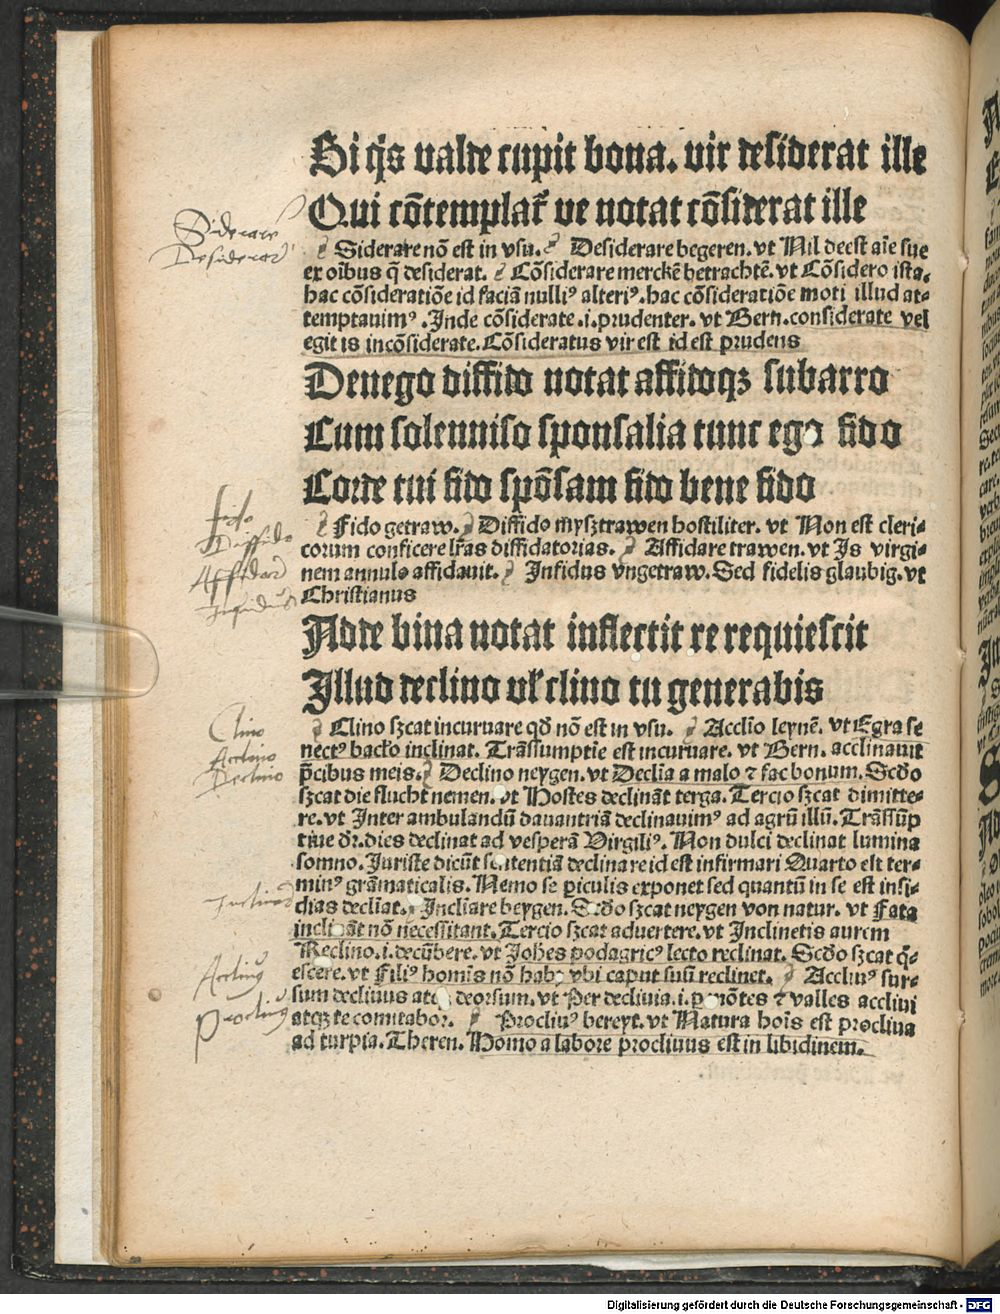 Si q̃s valde cupit bona. vir desiderat ille
Qui cõtemplať ve notat cõsiderat ille
Siderare
Desiderare
Siderare nõ est in vsu. Desiderare begeren. vt Nil deest aĩe sue
ex oĩbus q̃ desiderat. Cõsiderare merckẽ betrachtẽ. vt Cõsidero ista.
hac cõsideratiõe id faciã nulliꝰ alteriꝰ. hac cõsideratiõe moti illud at⸗
temptauimꝰ. Inde cõsiderate .i. prudenter. vt Bern. considerate vel
egit is incõsiderate. Cõsideratus vir est id est prudens
Denego diffido notat affidoqꝫ subarro
Cum solenniso sponsalia tunc ego fido
Corde tui fido spõsam fido bene fido
Fido
Diffido
Affidare
Infidus
Fido getraw. Diffido mysztrawen hostiliter. vt Non est cleri⸗
corum conficere lr̃as diffidatorias. Affidare trawen. vt Is virgi⸗
nem annulo affidauit. Infidus vngetraw. Sed fidelis glaubig. vt
Christianus
Adde bina notat inflectit re requiescit
Illud declino vľ clino tu generabis
Clino
Acclino
Declino
Clino sꝫcat incuruare qđ nõ est in vsu. Acclĩo leynẽ. vt Egra se
nectꝰ bacło inclinat. Trãssumptie est incuruare. vt Bern. acclinauit
p̃cibus meis. Declino neygen. vt Declĩa a malo ⁊ fac bonum. Scđo
sꝫcat die flucht nemen. vt Hostes declinãt terga. Tercio sꝫcat dimitte⸗
re. vt Inter ambulandũ dauantriã declinauimꝰ ad agrũ illũ. Trãssũp
tiue dr̃. dies declinat ad vesperã Virgiliꝰ. Non dulci declinat lumina
somno. Juriste dicũt sententiã declinare id est infirmari Quarto est ter⸗
minꝰ grãmaticalis. Nemo se piculis exponet sed quantũ in se est insi⸗
Inclinare
dias declĩat. Inclĩare beygen. Scđo sꝫcat neygen von natur. vt Fata
inclinãt nõ necessitant. Tercio sꝫcat aduertere. vt Inclinetis aurem
Reclino .i. decũbere. vt Johẽs podagricꝰ lecto reclinat. Scđo sꝫcat q̃⸗
Accliuꝰ
escere. vt Filiꝰ homĩs nõ habꝫ vbi caput suũ reclinet. Accliuꝰ sur⸗
sum decliuus atqꝫ deorsum. vt Per decliuia .i. p mõtes ⁊ valles accliui
Procliuꝰ
atqꝫ te comitabor. Procliuꝰ bereyt. vt Natura hoĩs est procliua
ad turpia. Theren. Homo a labore procliuus est in libidinem.
Digitalisierung gefördert durch die Deutsche Forschungsgemeinschaft - DFG